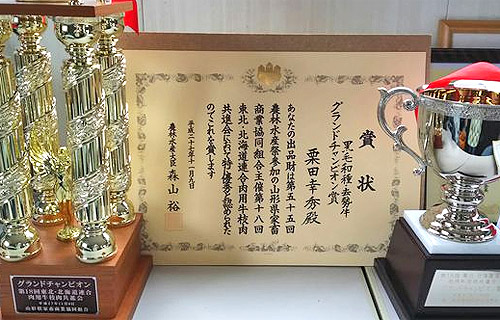 賞状
黒毛和種・去勢牛
グランドチャンピオン賞
栗田幸秀殿
あなたの出品財は第五十五回
農林水産祭参加の山形県家畜
商業協同組合主催第十八回
東北・北海道連合肉用牛枝肉
共進会において特に優秀と認められた
のでこれを賞します
平成二十七年十一月九日
農林水産大臣 森山裕
グランドチャンピオン
第18回東北・北海道連合
肉用牛枝肉共進会
平成27年11月9日
山形県家畜商業協同組合